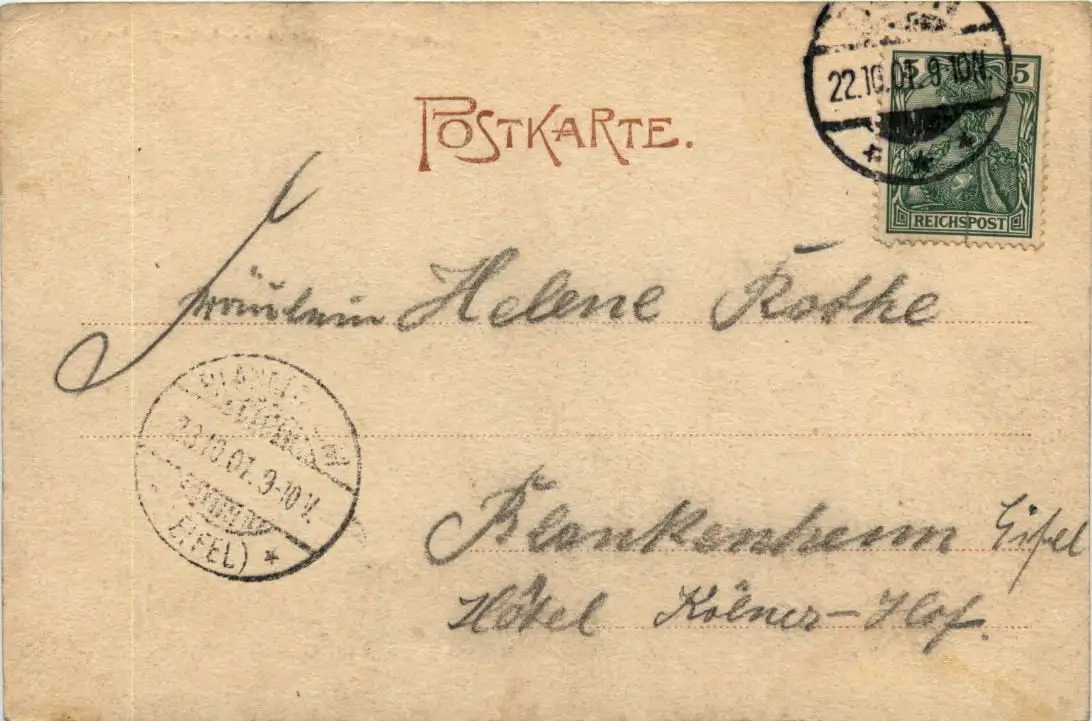 22.10.01. 9-10N.
5 5
POSTKARTE.
REICHSPOST
Fräulein Helene Rothe
BLANKENHEIM
23.10.01. 9-10V.
(EIFEL) *
Blankenheim Eifel
Hôtel Kölner-Hof.